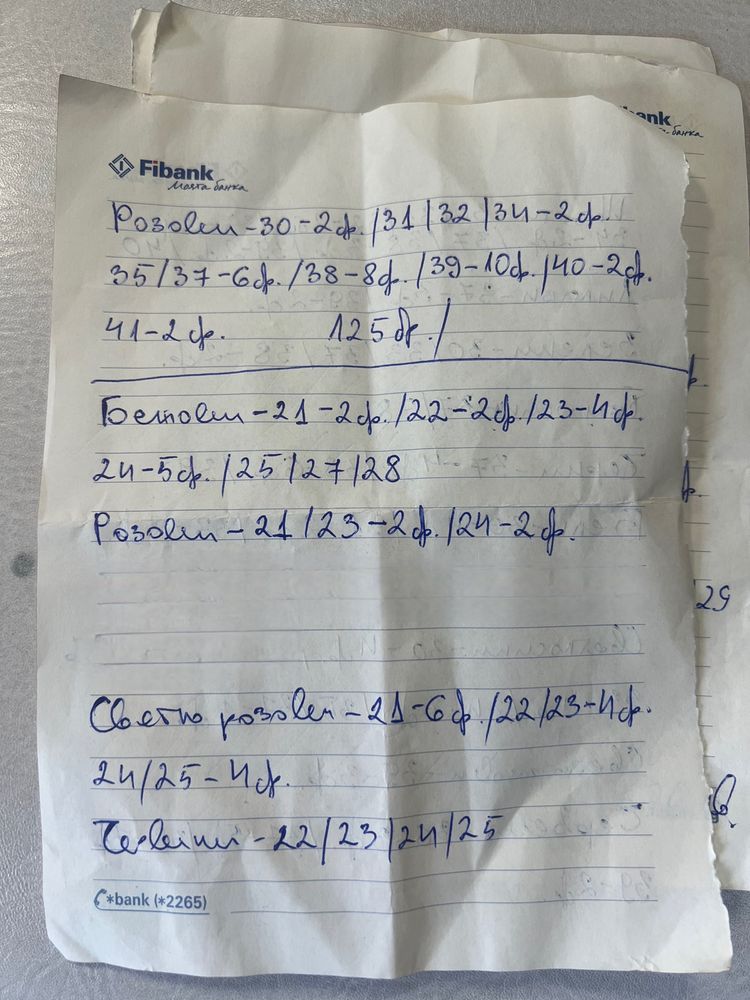 Fibank
Моята банка
ank
банка
Розови - 30 - 2ф. / 31 / 32 / 34 - 2ф.
35 / 37 - 6ф. / 38 - 8ф. / 39 - 10ф. / 40 - 2ф.
41 - 2ф. 125 бр. /
Бежови - 21 - 2ф. / 22 - 2ф. / 23 - 4ф.
24 - 5ф. / 25 / 27 / 28
Розови - 21 / 23 - 2ф. / 24 - 2ф.
29
Светло розови - 21 - 6ф. / 22 / 23 - 4ф.
24 / 25 - 4ф.
Червени - 22 / 23 / 24 / 25
*bank (*2265)